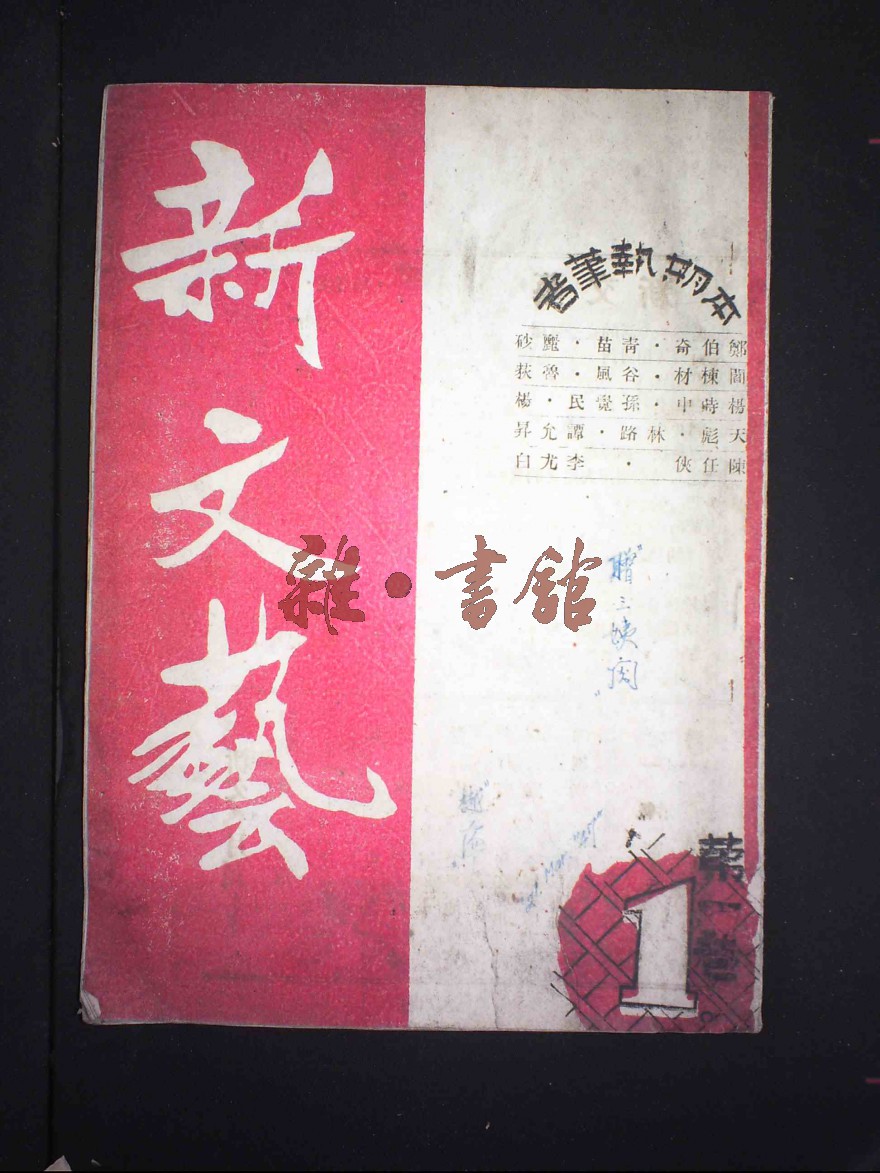 新文藝
本期執筆者
鄭伯奇·青苗·麗砂
閻棟材·谷風·魯荻
楊蒔中·孫覺民·楊
天彪·林路·譚允昇
陳任俠·李尤白
雜·書館
贈三姨閱
第一卷
1